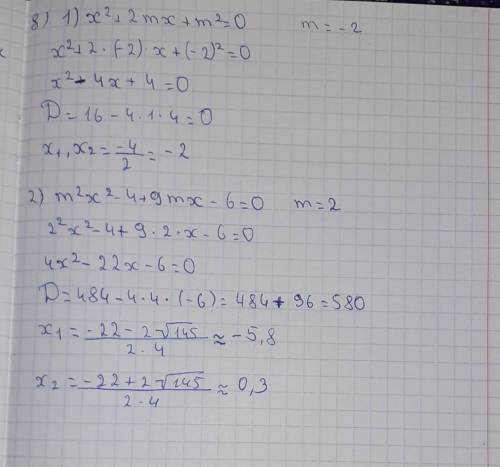 8) 1) x² + 2mx + m² = 0 m = -2
x² + 2 · (-2) · x + (-2)² = 0
x² - 4x + 4 = 0
D = 16 - 4 · 1 · 4 = 0
x₁, x₂ = -4/2 = -2
2) m²x² - 4 + 9mx - 6 = 0 m = 2
2²x² - 4 + 9 · 2 · x - 6 = 0
4x² - 22x - 6 = 0
D = 484 - 4 · 4 · (-6) = 484 + 96 = 580
x₁ = (-22 - 2√145)/(2 · 4) ≈ -5,8
x₂ = (-22 + 2√145)/(2 · 4) ≈ 0,3